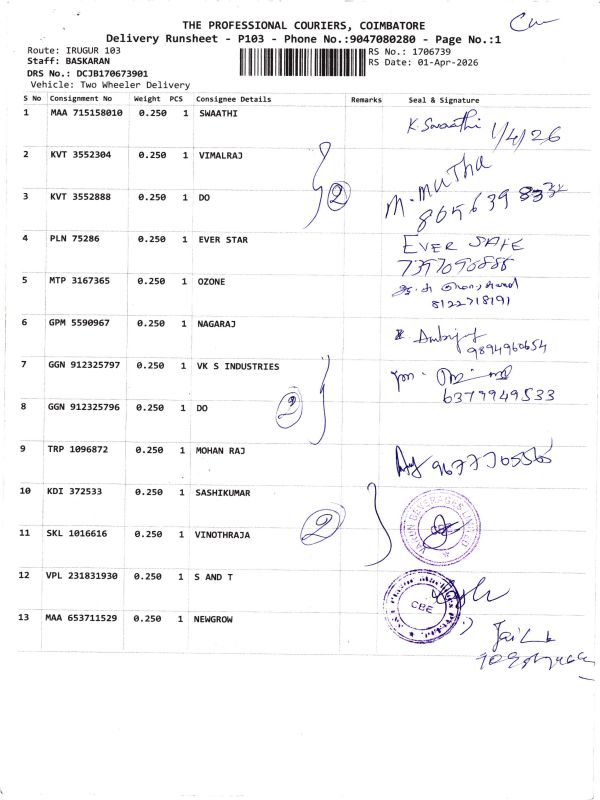 THE PROFESSIONAL COURIERS, COIMBATORE
Delivery Runsheet - P103 - Phone No.:9047080280 - Page No.:1
Route: IRUGUR 103
RS No.: 1706739
Staff: BASKARAN
RS Date: 01-Apr-2026
DRS No.: DCJB170673901
Vehicle: Two Wheeler Delivery
S No Consignment No Weight PCS Consignee Details Remarks Seal & Signature
1 MAA 715158010 0.250 1 SWAATHI K. Swaathi 1/4/26
2 KVT 3552304 0.250 1 VIMALRAJ M. Mutha
2
3 KVT 3552888 0.250 1 DO
4 PLN 75286 0.250 1 EVER STAR EVER SAFE
7397096886
5 MTP 3167365 0.250 1 OZONE
8122718191
6 GPM 5590967 0.250 1 NAGARAJ
9894960654
7 GGN 912325797 0.250 1 VK S INDUSTRIES
6379949533
8 GGN 912325796 0.250 1 DO 2
9 TRP 1096872 0.250 1 MOHAN RAJ
10 KDI 372533 0.250 1 SASHIKUMAR
2
11 SKL 1016616 0.250 1 VINOTHRAJA
12 VPL 231831930 0.250 1 S AND T CBE
13 MAA 653711529 0.250 1 NEWGROW